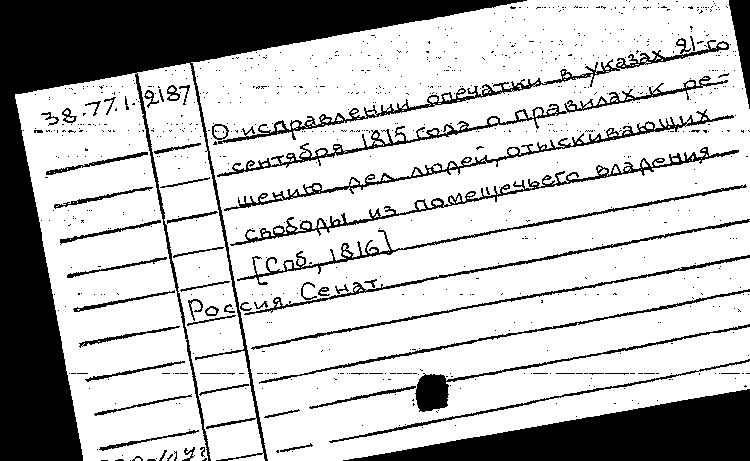 38.77.1.2187
О исправлении опечатки в указах 21-го
сентября 1815 года о правилах к ре-
шению дел людей, отыскивающих
свободы из помещечьего владения
[Спб., 1816]
Россия. Сенат.